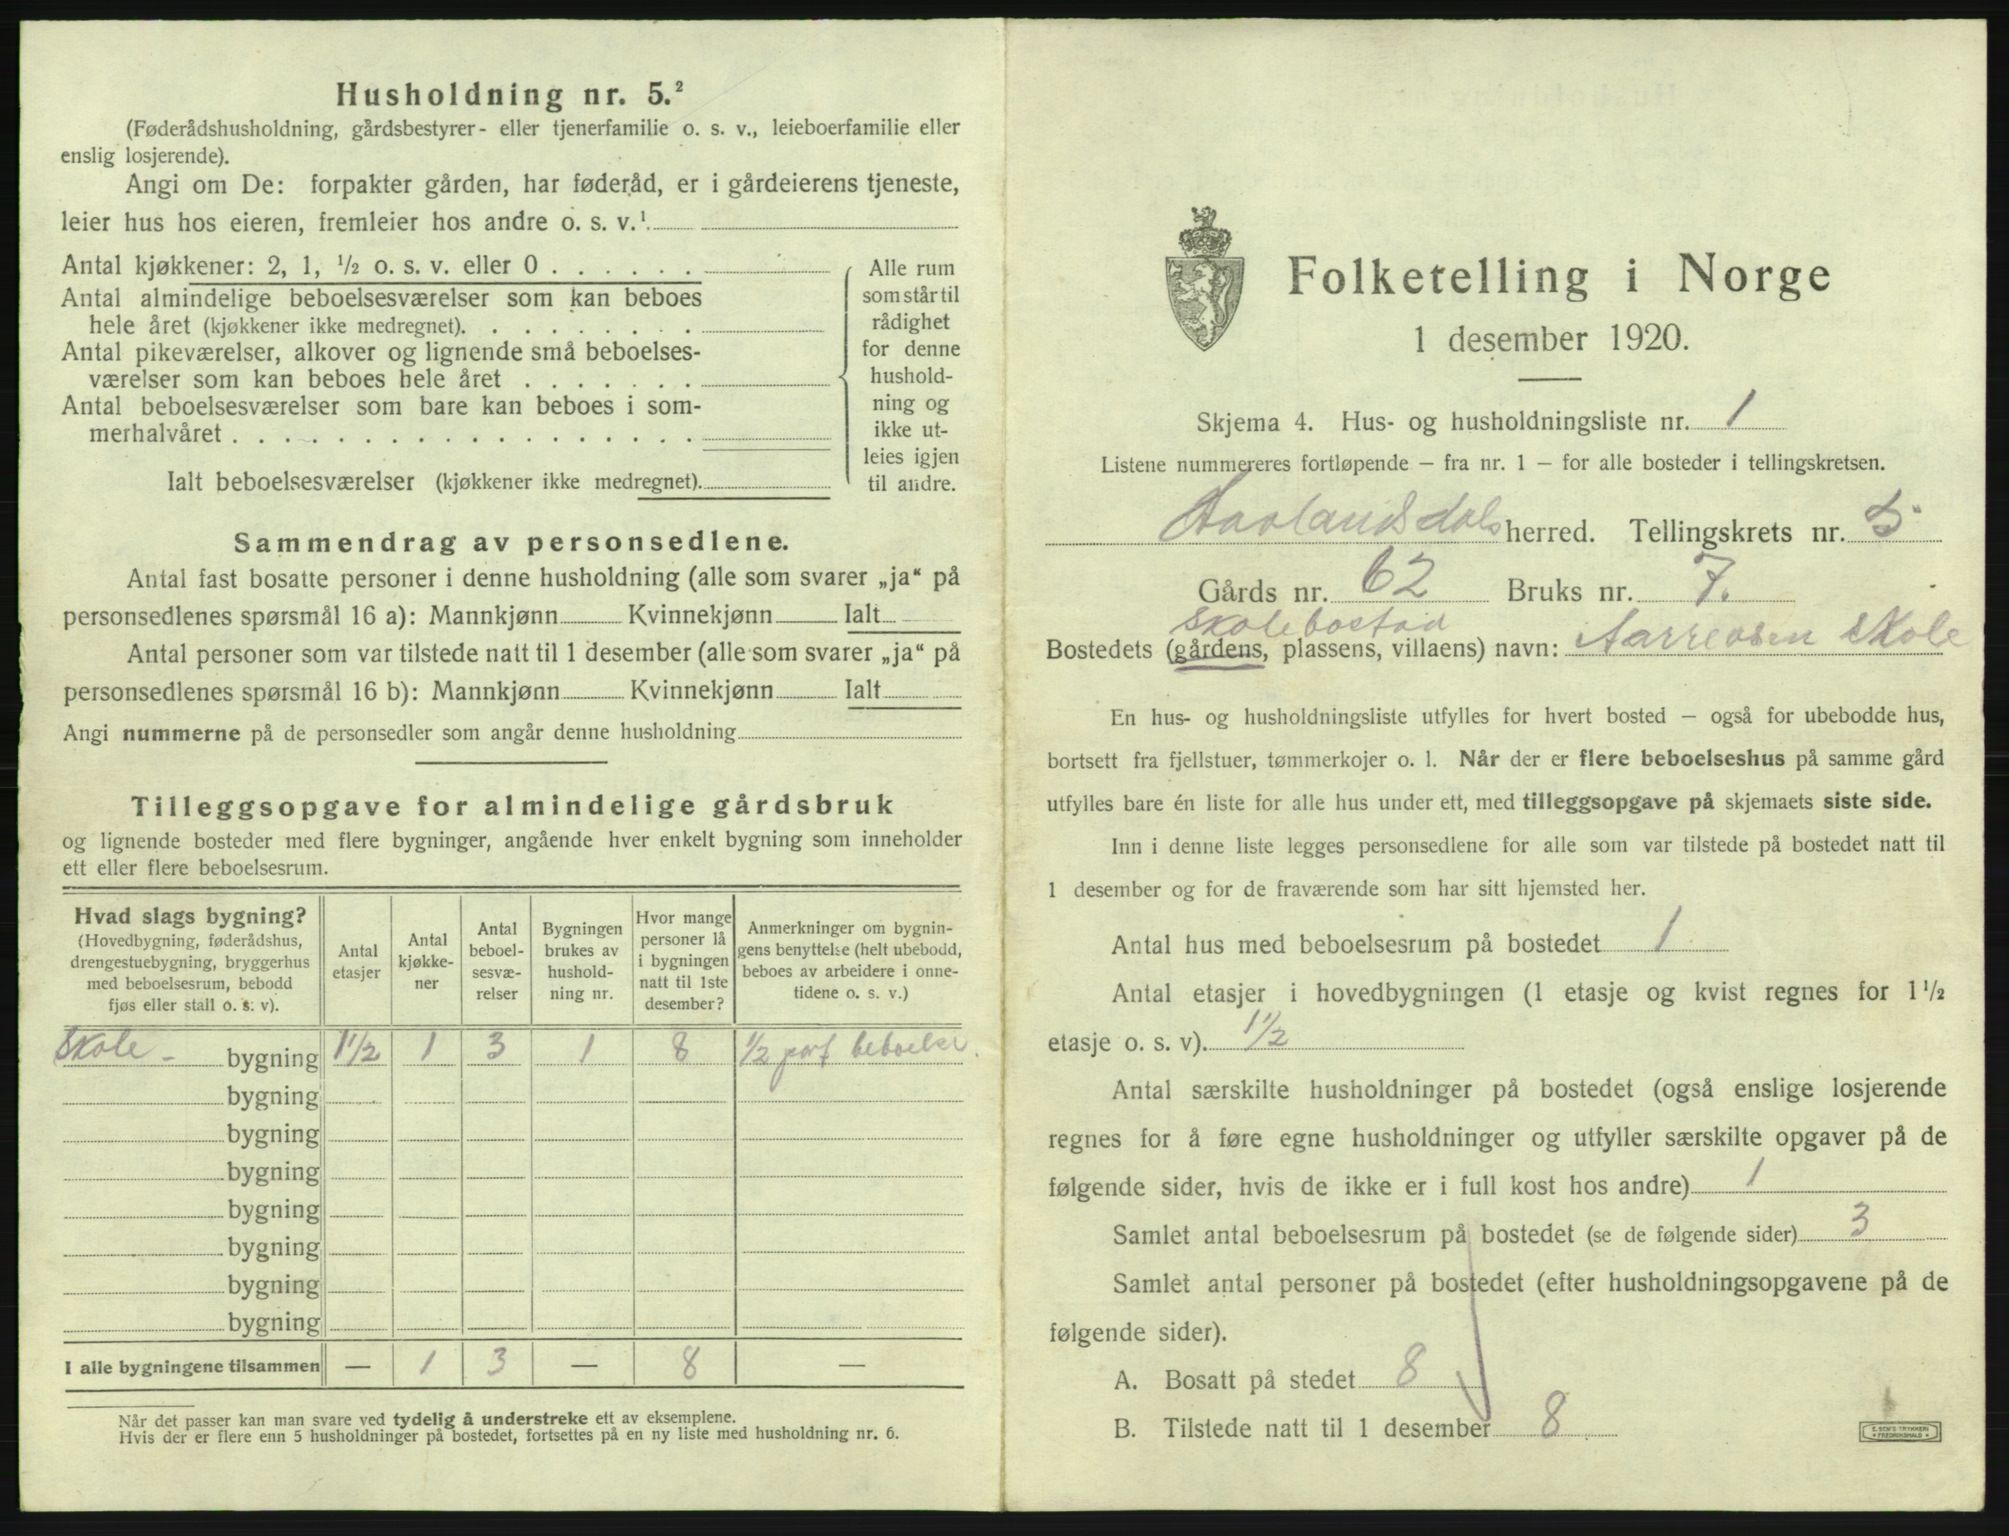 Husholdning nr. 5.²
(Føderådshusholdning, gårdsbestyrer- eller tjenerfamilie o. s. v., leieboerfamilie eller
enslig losjerende).
Angi om De: forpakter gården, har føderåd, er i gårdeierens tjeneste,
leier hus hos eieren, fremleier hos andre o. s. v.¹
Antal kjøkkener: 2, 1, ½ o. s. v. eller 0 . . . . . .
Antal almindelige beboelsesværelser som kan beboes
hele året (kjøkkener ikke medregnet). . . . . . . . .
Antal pikeværelser, alkover og lignende små beboelses-
værelser som kan beboes hele året . . . . . . .
Antal beboelsesværelser som bare kan beboes i som-
merhalvåret . . . . . . . . . . . . . . . . . .
Ialt beboelsesværelser (kjøkkener ikke medregnet).
Alle rum
som står til
rådighet
for denne
hushold-
ning og
ikke ut-
leies igjen
til andre.
Sammendrag av personsedlene.
Antal fast bosatte personer i denne husholdning (alle som svarer „ja“ på
personsedlenes spørsmål 16 a): Mannkjønn Kvinnekjønn Ialt
Antal personer som var tilstede natt til 1 desember (alle som svarer „ja“ på
personsedlenes spørsmål 16 b): Mannkjønn Kvinnekjønn Ialt
Angi nummerne på de personsedler som angår denne husholdning
Tilleggsopgave for almindelige gårdsbruk
og lignende bosteder med flere bygninger, angående hver enkelt bygning som inneholder
ett eller flere beboelsesrum.
Hvad slags bygning?
(Hovedbygning, føderådshus,
drengestuebygning, bryggerhus
med beboelsesrum, bebodd
fjøs eller stall o. s. v).
Antal
etasjer
Antal
kjøkke-
ner
Antal
beboel-
sesvæ-
relser
Bygningen
brukes av
hushold-
ning nr.
Hvor mange
personer lå
i bygningen
natt til 1ste
desember?
Anmerkninger om bygnin-
gens benyttelse (helt ubebodd,
beboes av arbeidere i onne-
tidene o. s. v.)
Skole - bygning 1½ 1 3 1 8 ½ part beboelse.
bygning
bygning
bygning
bygning
bygning
bygning
bygning
I alle bygningene tilsammen — 1 3 — 8 —
Når det passer kan man svare ved tydelig å understreke ett av eksemplene.
Hvis der er flere enn 5 husholdninger på bostedet, fortsettes på en ny liste med husholdning nr. 6.
Folketelling i Norge
1 desember 1920.
Skjema 4. Hus- og husholdningsliste nr. 1
Listene nummereres fortløpende – fra nr. 1 – for alle bosteder i tellingskretsen.
herred. Tellingskrets nr. 5
Gårds nr. 62 Bruks nr. 7.
skolebostad
Bostedets (gårdens, plassens, villaens) navn: Aarreosen skole
En hus- og husholdningsliste utfylles for hvert bosted – også for ubebodde hus,
bortsett fra fjellstuer, tømmerkojer o. l. Når der er flere beboelseshus på samme gård
utfylles bare én liste for alle hus under ett, med tilleggsopgave på skjemaets siste side.
Inn i denne liste legges personsedlene for alle som var tilstede på bostedet natt til
1 desember og for de fraværende som har sitt hjemsted her.
Antal hus med beboelsesrum på bostedet 1
Antal etasjer i hovedbygningen (1 etasje og kvist regnes for 1½
etasje o. s. v). 1½
Antal særskilte husholdninger på bostedet (også enslige losjerende
regnes for å føre egne husholdninger og utfyller særskilte opgaver på de
følgende sider, hvis de ikke er i full kost hos andre) 1
Samlet antal beboelsesrum på bostedet (se de følgende sider) 3
Samlet antal personer på bostedet (efter husholdningsopgavene på de
følgende sider).
A. Bosatt på stedet 8
B. Tilstede natt til 1 desember 8